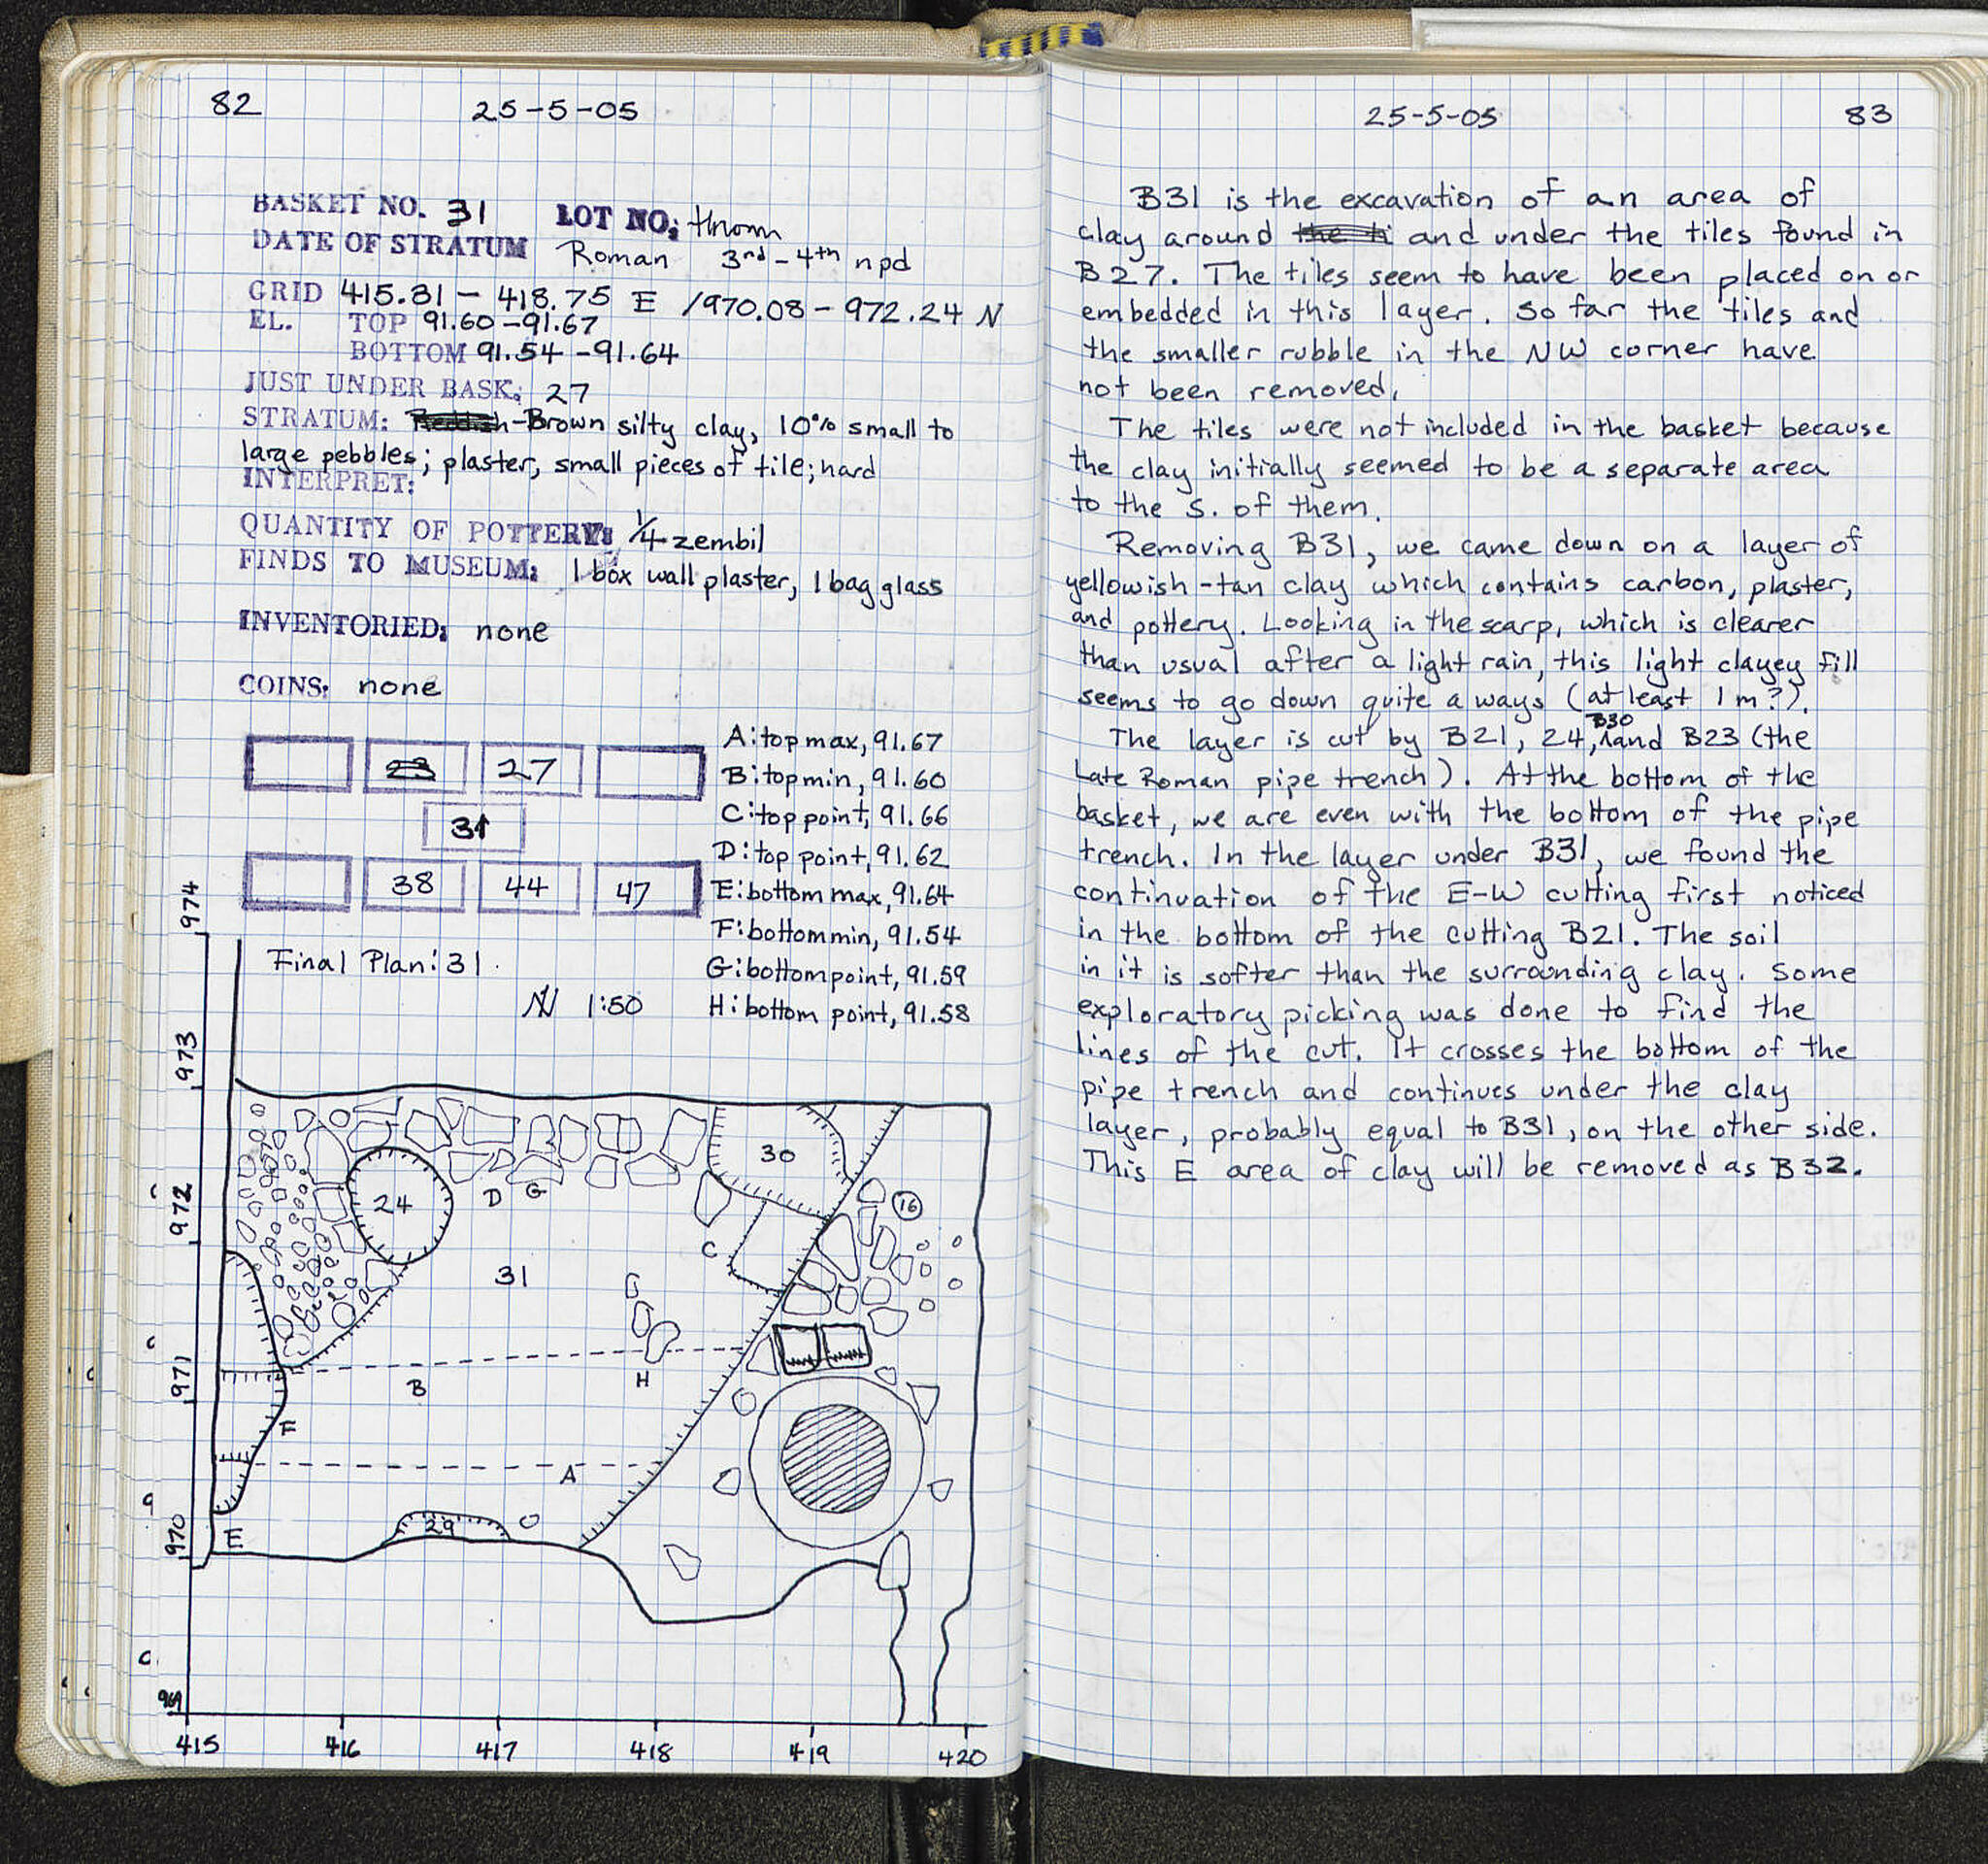 82
25-5-05
BASKET NO. 31 LOT NO: thrown
DATE OF STRATUM Roman 3rd-4th npd
GRID 415.31 - 418.75 E / 970.08 - 972.24 N
EL. TOP 91.60-91.67
BOTTOM 91.54-91.64
JUST UNDER BASK: 27
STRATUM: Reddish-Brown silty clay, 10% small to
large pebbles; plaster, small pieces of tile; hard
INTERPRET:
QUANTITY OF POTTERY: 1/4 zembil
FINDS TO MUSEUM: 1 box wall plaster, 1 bag glass
INVENTORIED: none
COINS: none
23 27
31
38 44 47
A: top max, 91.67
B: top min, 91.60
C: top point, 91.66
D: top point, 91.62
E: bottom max, 91.64
F: bottom min, 91.54
G: bottom point, 91.59
H: bottom point, 91.58
Final Plan: 31
N 1:50
974
973
972
971
970
969
30
24
D G
16
C
31
B
H
F
A
29
E
415 416 417 418 419 420
25-5-05
83
B31 is the excavation of an area of
clay around the ti and under the tiles found in
B27. The tiles seem to have been placed on or
embedded in this layer. So far the tiles and
the smaller rubble in the NW corner have
not been removed.
The tiles were not included in the basket because
the clay initially seemed to be a separate area
to the S. of them.
Removing B31, we came down on a layer of
yellowish-tan clay which contains carbon, plaster,
and pottery. Looking in the scarp, which is clearer
than usual after a light rain, this light clayey fill
seems to go down quite a ways (at least 1 m?).
The layer is cut by B21, 24, B30 and B23 (the
Late Roman pipe trench). At the bottom of the
basket, we are even with the bottom of the pipe
trench. In the layer under B31, we found the
continuation of the E-W cutting first noticed
in the bottom of the cutting B21. The soil
in it is softer than the surrounding clay. Some
exploratory picking was done to find the
lines of the cut. It crosses the bottom of the
pipe trench and continues under the clay
layer, probably equal to B31, on the other side.
This E area of clay will be removed as B32.